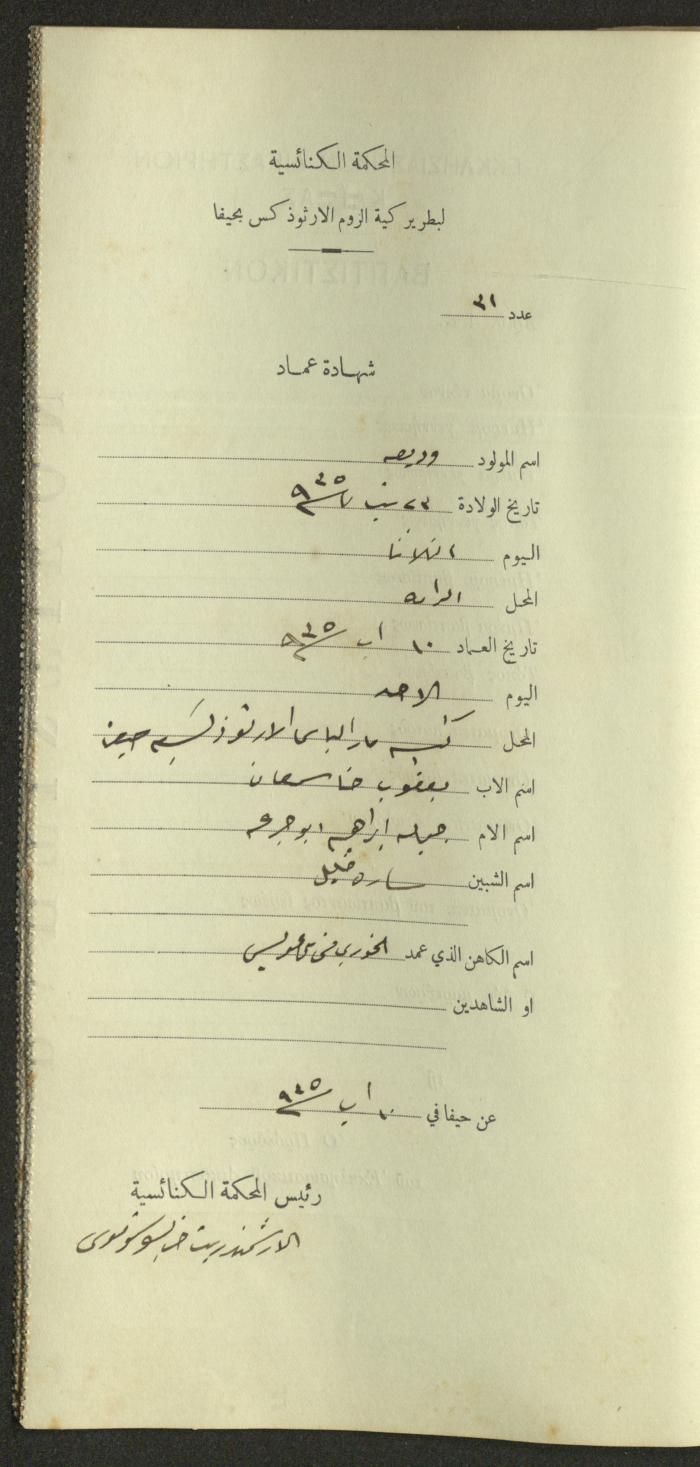 المحكمة الكنائسية
لبطريركية الروم الارثوذكس بحيفا
عدد ٣١
شهادة عماد
اسم المولود وديعه
تاريخ الولادة ٢٣ ٩٣٥
اليوم الثلاثا
المحل الرامه
تاريخ العماد ١٠ اب ٩٣٥
اليوم الاحد
المحل كنيسه مار الياس الارثوذكسيه حيفا
اسم الاب يعقوب حنا سمعان
اسم الام جميله ابراهيم ابو جرعه
اسم الشبين ساره خليل
اسم الكاهن الذي عمد الخوري
او الشاهدين
عن حيفا في ١٠ اب ٩٣٥
رئيس المحكمة الكنائسية
الارشمندريت